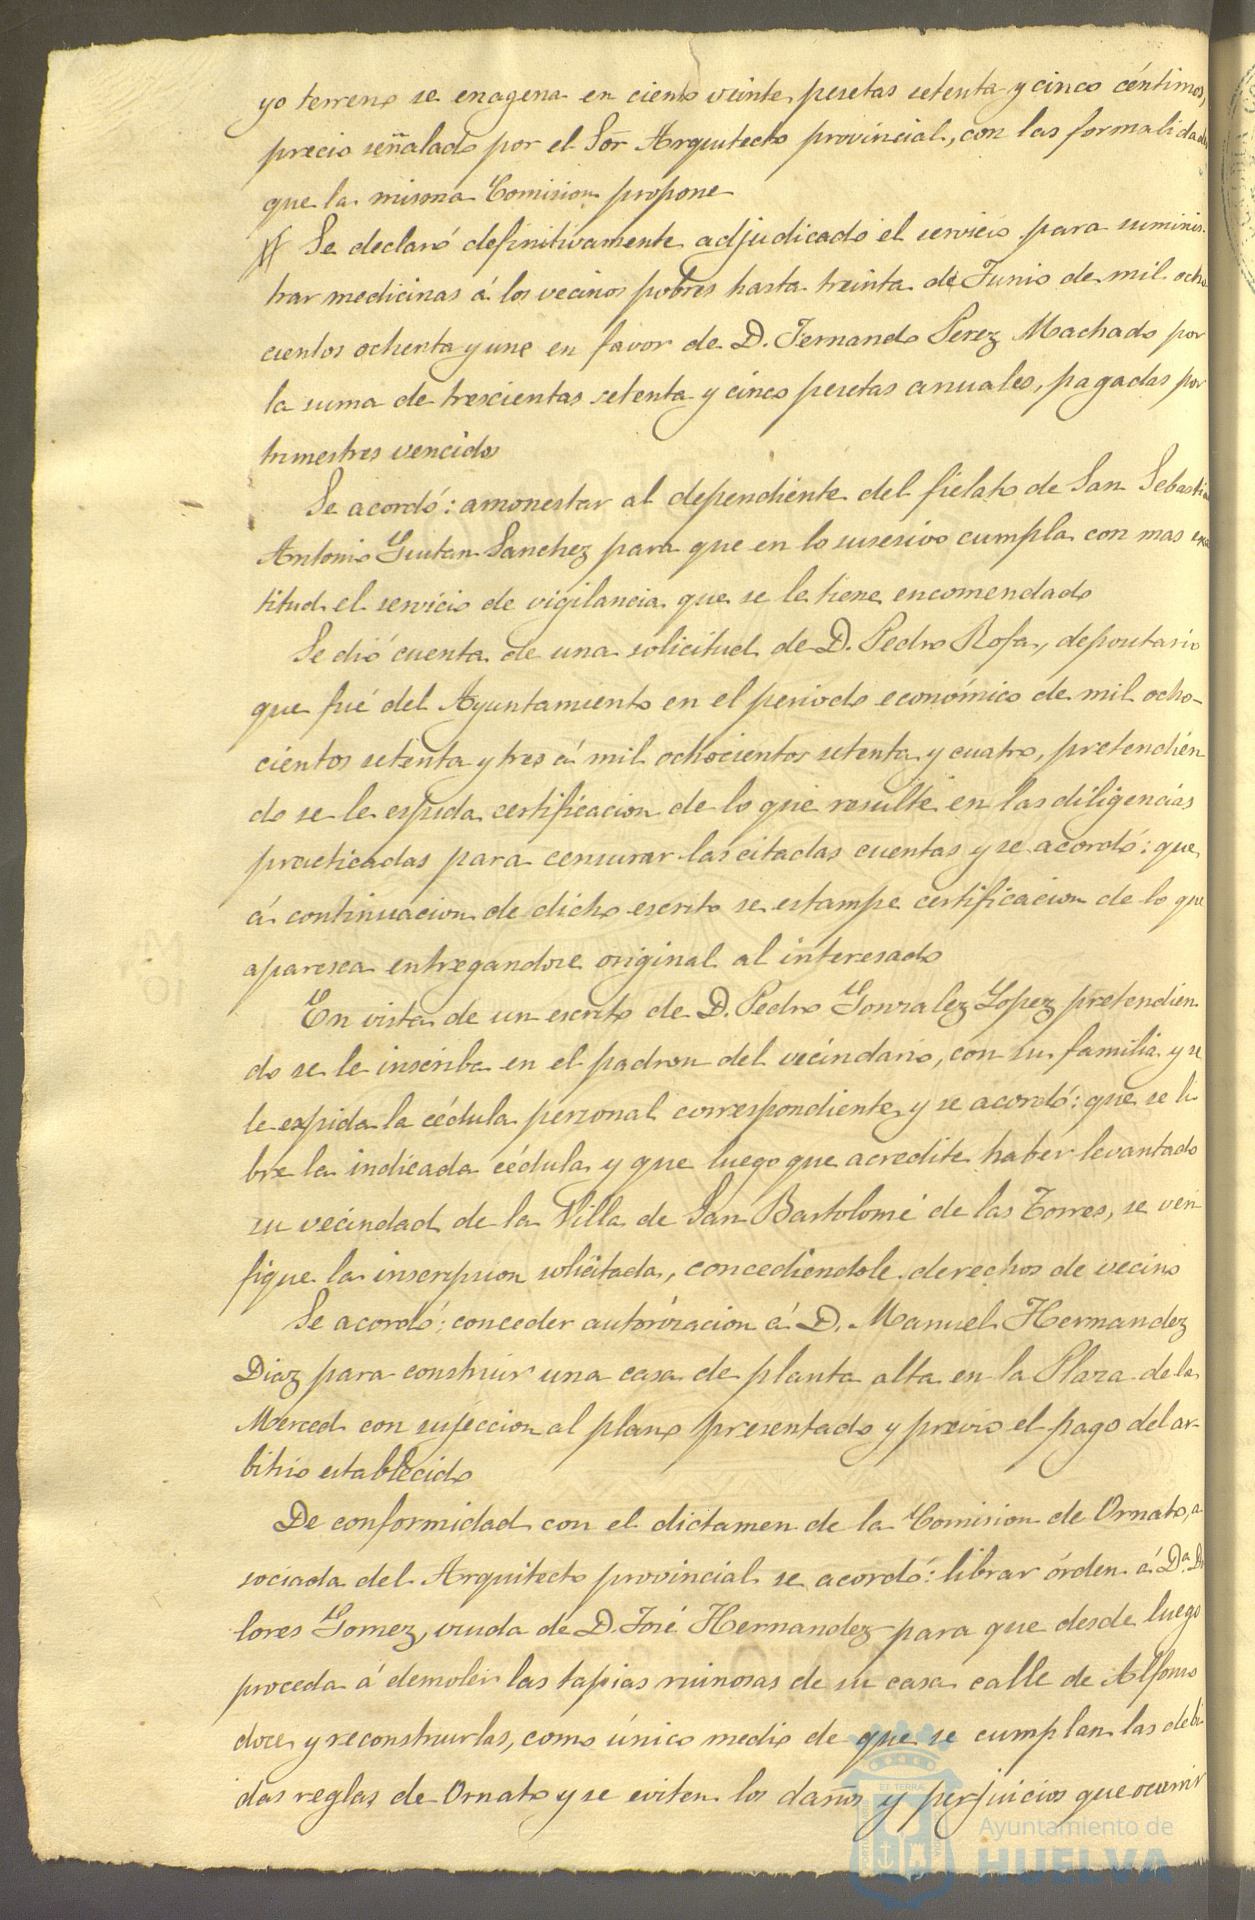 yo terreno se enagena en ciento veinte pesetas setenta y cinco céntimos,
precio señalado por el Sor Arquitecto provincial, con las formalidades
que la misma Comision propone
Se declaró definitivamente adjudicado el servicio para suminis-
trar medicinas á los vecinos pobres hasta treinta de Junio de mil ocho
cientos ochenta y uno en favor de D. Fernando Perez Machado por
la suma de trescientas setenta y cinco pesetas anuales, pagadas por
trimestres vencidos
Se acordó: amonestar al dependiente del fielato de San Sebastian
Antonio Sanchez para que en lo suscesivo cumpla con mas exac
titud el servicio de vigilancia que se le tiene encomendado
Se dió cuenta de una solicitud de D. Pedro Rofa, depositario
que fué del Ayuntamiento en el periodo económico de mil ocho-
cientos setenta y tres á mil ochocientos setenta y cuatro, pretendien
do se le espida certificacion de lo que resulte en las diligencias
practicadas para censurar las citadas cuentas y se acordó: que
á continuacion de dicho escrito se estampe certificacion de lo que
aparesca entregandose original al interesado
En vista de un escrito de D. Pedro Gonzalez Lopez pretendien
do se le inscriba en el padron del vecindario, con su familia y se
le expida la cédula personal correspondiente y se acordó: que se li
bre la indicada cédula y que luego que acredite haber levantado
su vecindad de la Villa de San Bartolomé de las Torres, se veri
fique la inscripcion solicitada, concediendole derechos de vecino
Se acordó: conceder autorizacion á D. Manuel Hernandez
Diaz para construir una casa de planta alta en la Plaza de la
Merced con sujeccion al plano presentado y previo el pago del ar-
bitrio establecido
De conformidad con el dictamen de la Comision de Ornato, a
sociada del Arquitecto provincial se acordó: librar órden á Da. Do
lores Gomez, viuda de D. José Hernandez para que desde luego
proceda á demoler las tapias ruinosas de su casa calle de Alfonso
doce y reconstruirlas, como único medio de que se cumplan las debi
das reglas de Ornato y se eviten los daños y perjuicios que ocurrir
Ayuntamiento de
HUELVA